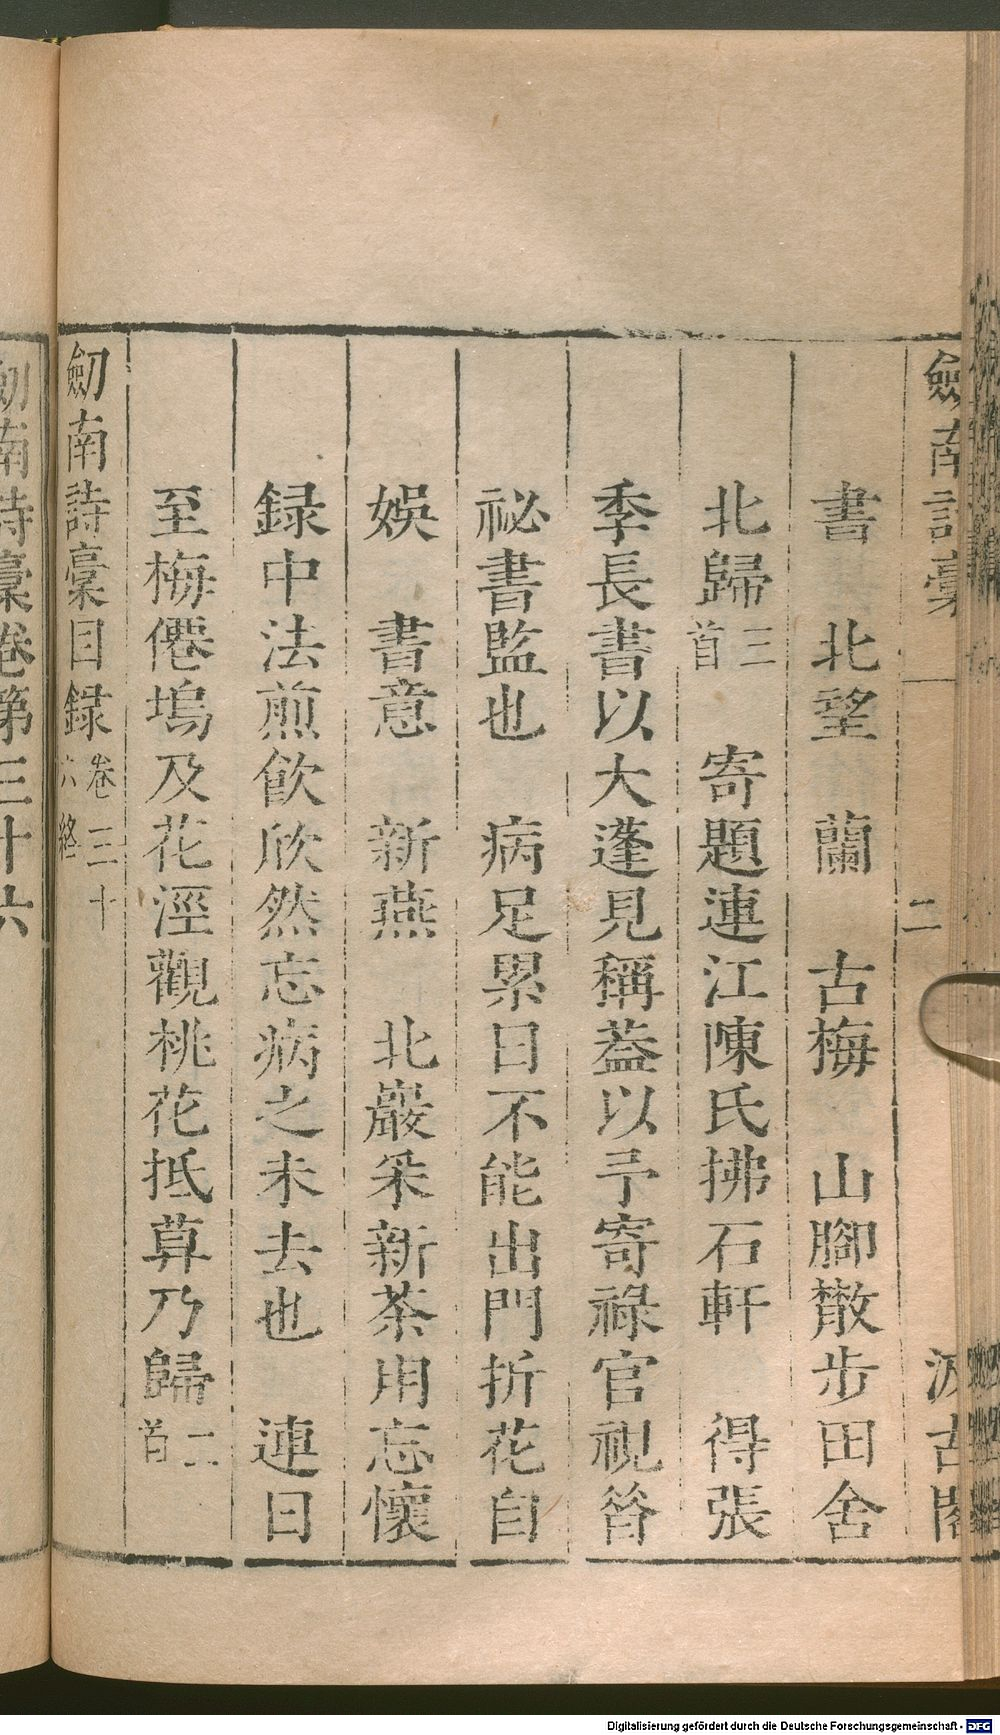 劒南詩稾 二 汲古閣
書 北望 蘭 古梅 山腳散步田舍
北歸三首 寄題連江陳氏拂石軒 得張
季長書以大蓬見稱葢以予寄祿官視昝
祕書監也 病足累日不能出門折花自
娛 書意 新燕 北巖采新茶用忘懷
録中法煎飲欣然忘病之未去也 連日
至梅僊塢及花涇觀桃花抵莫乃歸二首
劒南詩稾目録卷三十六終
劒南詩稾卷第三十六
Digitalisierung gefördert durch die Deutsche Forschungsgemeinschaft - DFG